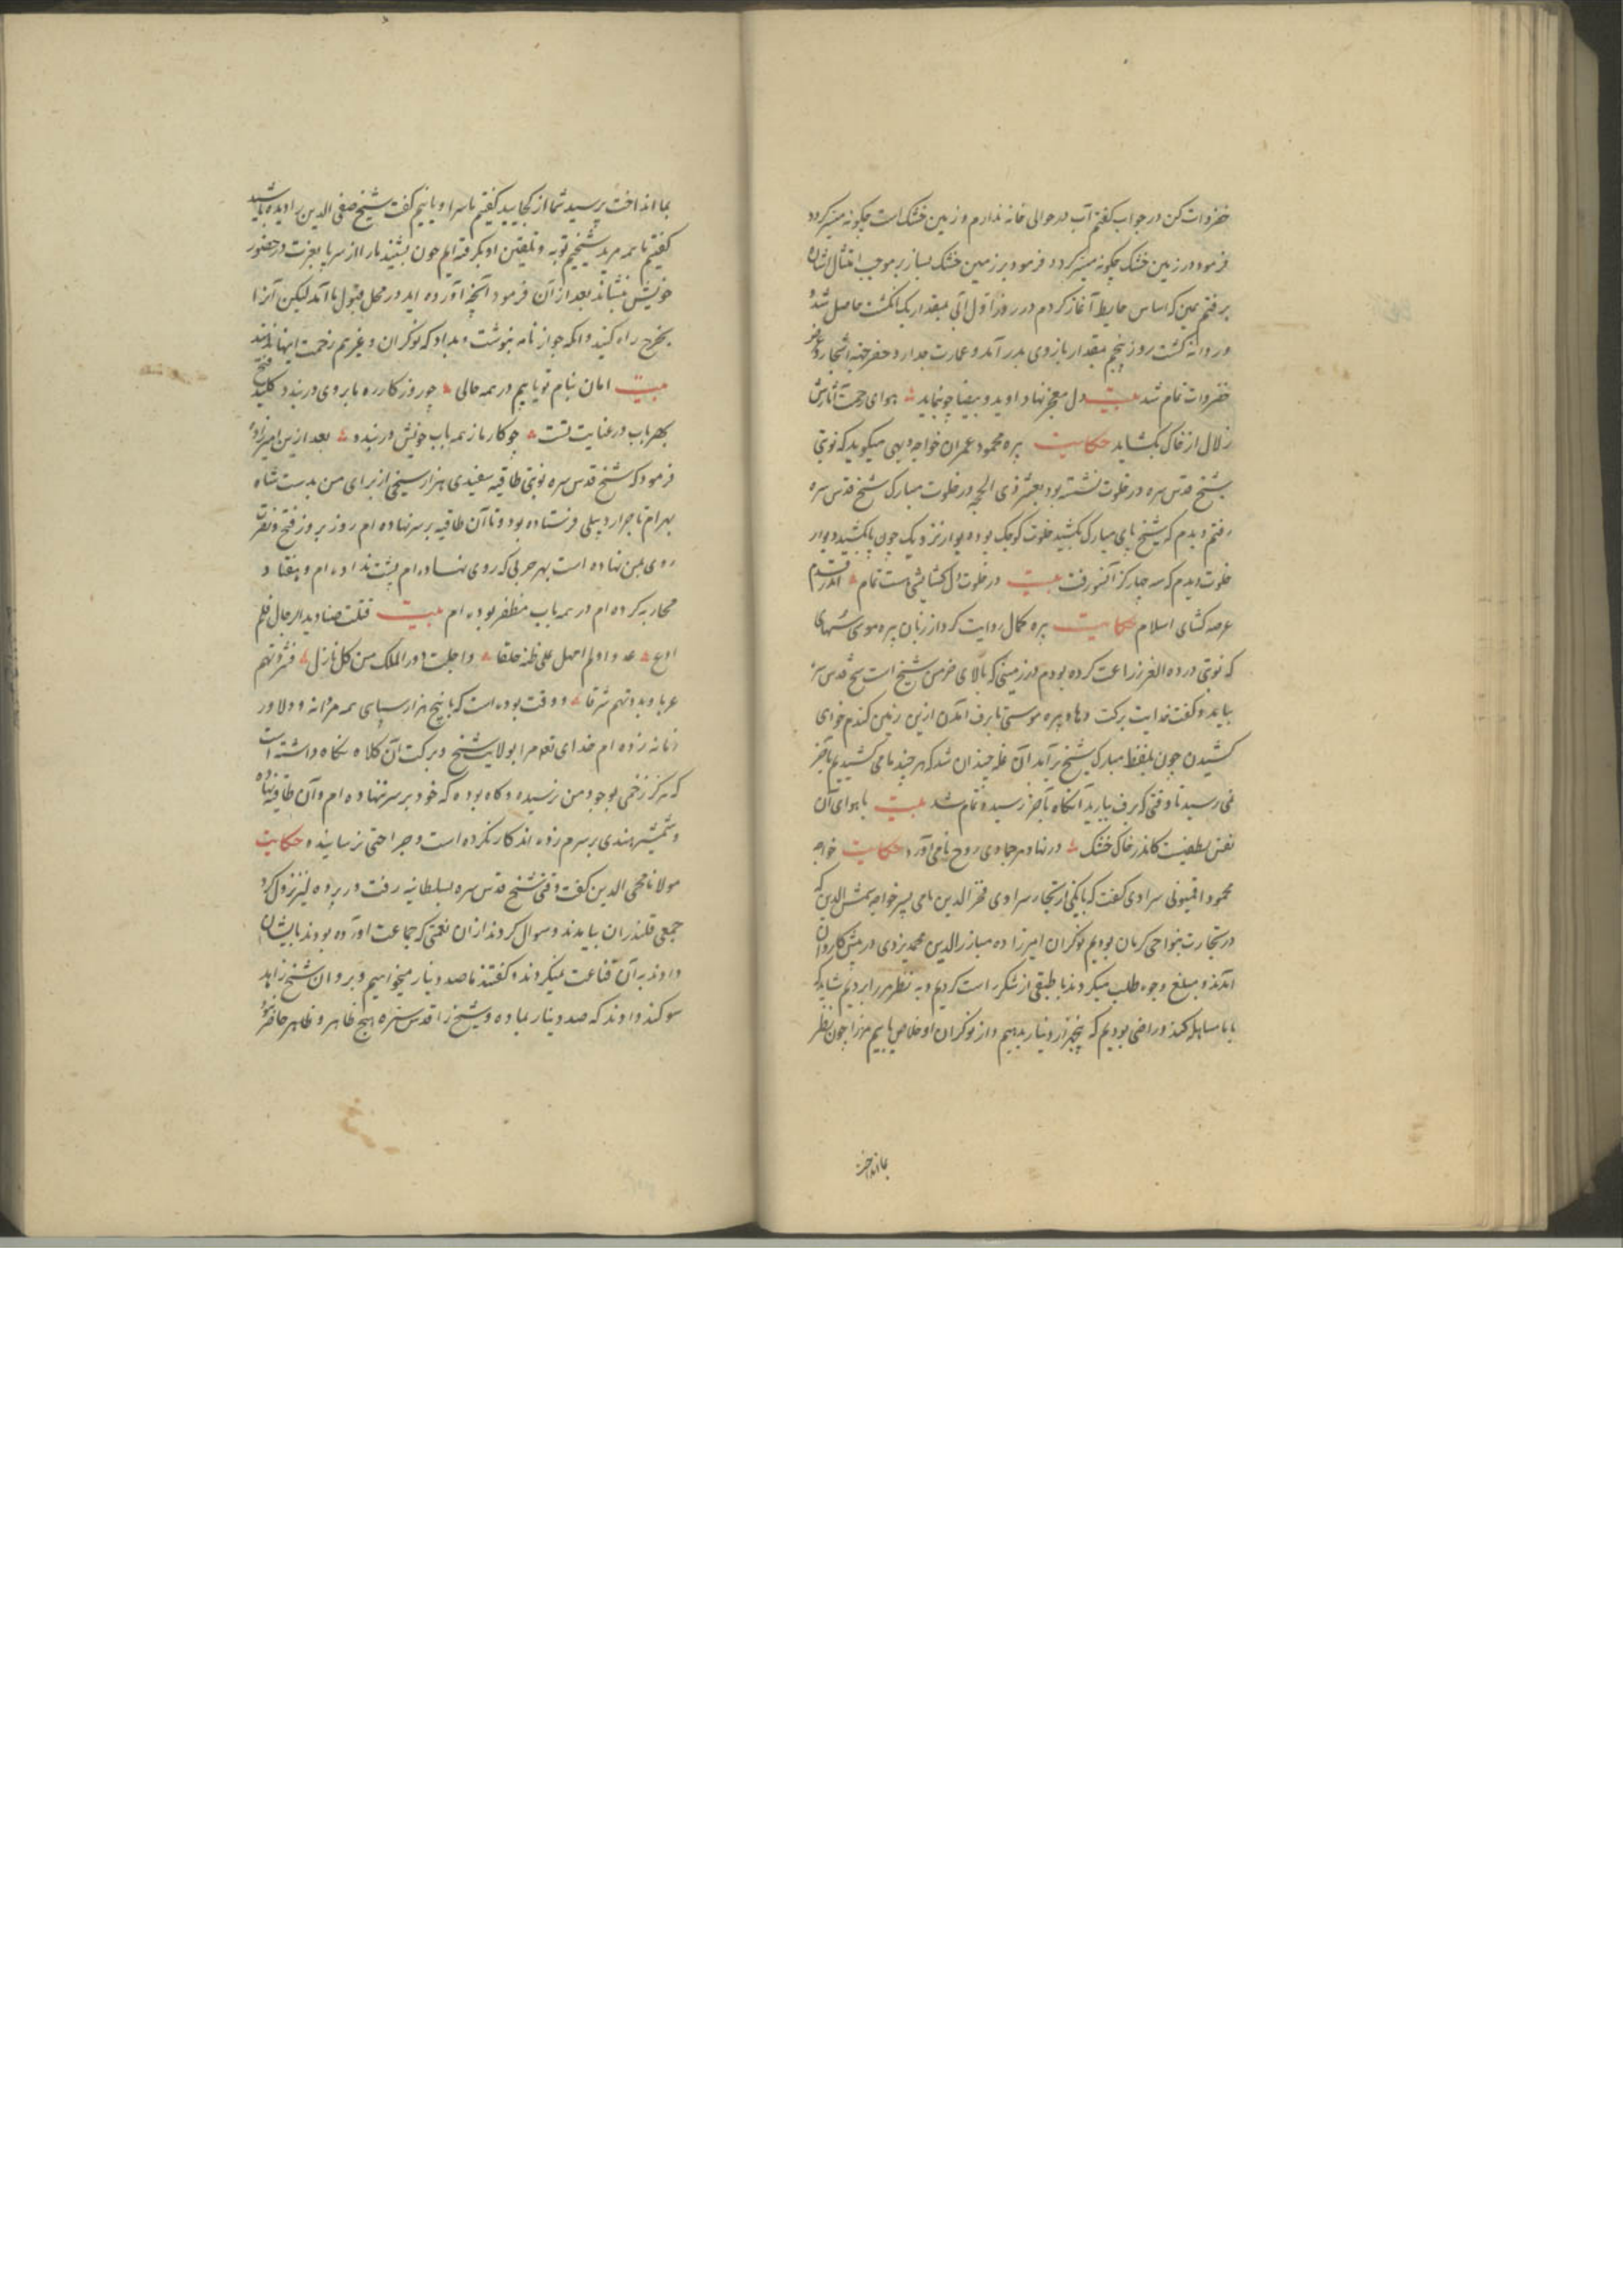 خضروات کن در جواب گفتم آب در حوالی خانه ندارم و زمین خشک است چگونه میسر کردد
فرمود در زمین خشک چگونه میسر کردد فرمود بر زمین خشک بساز بر موجب امتثال اشاره
برفتم همین که اساس حایط آغاز کردم در روز اول آبی بمقدار یک انگشت حاصل شد و
روانه گشت روز پنجم بمقدار بازوی بدر آمد و عمارت جدار و حفر جنه اشجار و
خضروات تمام شد بیت دل معجز نهاد او ید و بیضا چو بنماید هوای رحمت آثارش
زلال از خاک بکشاید حکایت پیره محمود عمران خواجه میکوید که نوبتی
شیخ قدس سره در خلوت نشسته بود بعشر ذی الحجه در خلوت مبارک شیخ قدس سره
رفتم دیدم که شیخ پای مبارک بکشید خلوت کوچک بود دیوار نزدیک چون پا بکشید دیوار
خلوت دیدم که سه چهار کز آنسو رفت بیت در خلوت دل کشایشی هست تمام اندر قدم
عرصه کشای اسلام حکایت پیره کمال روایت کرد از زبان پیره موسی
که نوبتی در ده زراعت کرده بودم در زمینی که بالای خرمن شیخ است شیخ قدس سره
بیامد و گفت خدایت برکت دهاد پیره موسی تا برف آمدن ازین زمین کندم خواهی
کشیدن چون بلفظ مبارک شیخ برآمد آن غله چندان شد که هر چند ما می کشیدیم بآخر
نمی رسید تا وقتی که برف ببارید آنکاه بآخر رسید و تمام شد بیت با هوای آن
نفس لطفیست کاندر خاک خشک در نهاد هر جمادی روح نامی آورد حکایت خواجه
محمود سراوی کفت که با یکی از تجار سراوی فخر الدین نامی پسر خواجه شمس الدین که
در تجارت بنواحی کرمان بودیم نوکران امیرزاده مبارز الدین محمد یزدی در پیش کاروان
آمدند و مبلغ وجوه طلب میکردند ما طبقی از شکر راست کردیم و به نظر میرزا بردیم شاید که
با ما مساهله کند و راضی بودیم که پنجهزار دینار بدهیم و از نوکران او خلاص یابیم میرزا چون نظر
بما انداخت
بما انداخت پرسید شما از کجایید کفتیم ما سراویانیم کفت شیخ صفی الدین را دیده باشید
کفتیم ما همه مرید شیخیم توبه و تلقین او بکرفته ایم چون بشنید ما را از سر پا بعزت در حضور
خویش بنشاند بعد از آن فرمود آنچه آورده اید در محل قبول ما آمد لیکن آنرا
بخرج راه کنید و آنکه جواز نامه بنوشت و بداد که نوکران و غیرهم زحمت اینها ندهند
بیت امان بنام تو یابیم در همه حالی چو روزکار ره ما بروی در بندد کلید فتح
بهر باب در عنایت تست چو کار ما ز همه باب خویش در بندد بعد ازین امیرزاده
فرمود که شیخ قدس سره نوبتی طاقیه سفیدی هزار میخی از برای من بدست شاه
بهرام تاجر اردبیلی فرستاده بود و تا آن طاقیه بر سر نهاده ام روز بروز فتح و نصرت
روی بمن نهاده است بهر حربی که روی نهاده ام پشت نداده ام و هفتاد
محاربه کرده ام در همه باب مظفر بوده ام بیت قتلت صنادید الرجال فلم
ادع عدوا ولم امهل علی ظنه خلقا واخلیت دور الملک من کل نازل فشردتهم
غربا وبددتهم شرقا و وقت بوده است که با پنج هزار سپاهی همه مردانه و دلاور
زمانه زده ام خدای تعالی مرا بولایت شیخ و برکت آن کلاه نکاه داشته است
که هرکز زخمی بوجود من نرسیده و کاه بوده که خود بر سر ننهاده ام و آن طاقیه نهاده
و شمشیر هندی بر سرم زده اند کار نکرده است و جراحتی نرسانیده حکایت
مولانا محیی الدین کفت وقتی شیخ قدس سره بسلطانیه رفت در نزول کرد
جمعی قلندران بیامدند و سوال کردند از آن نعمتی که جماعت آورده بودند بایشان
دادند به آن قناعت نمیکردند و کفتند ما صد دینار میخواهیم و بروان شیخ زاهد
سوکند دادند که صد دینار بما ده و شیخ را قدس سره هیچ ظاهر و ظاهر حاضر نبود